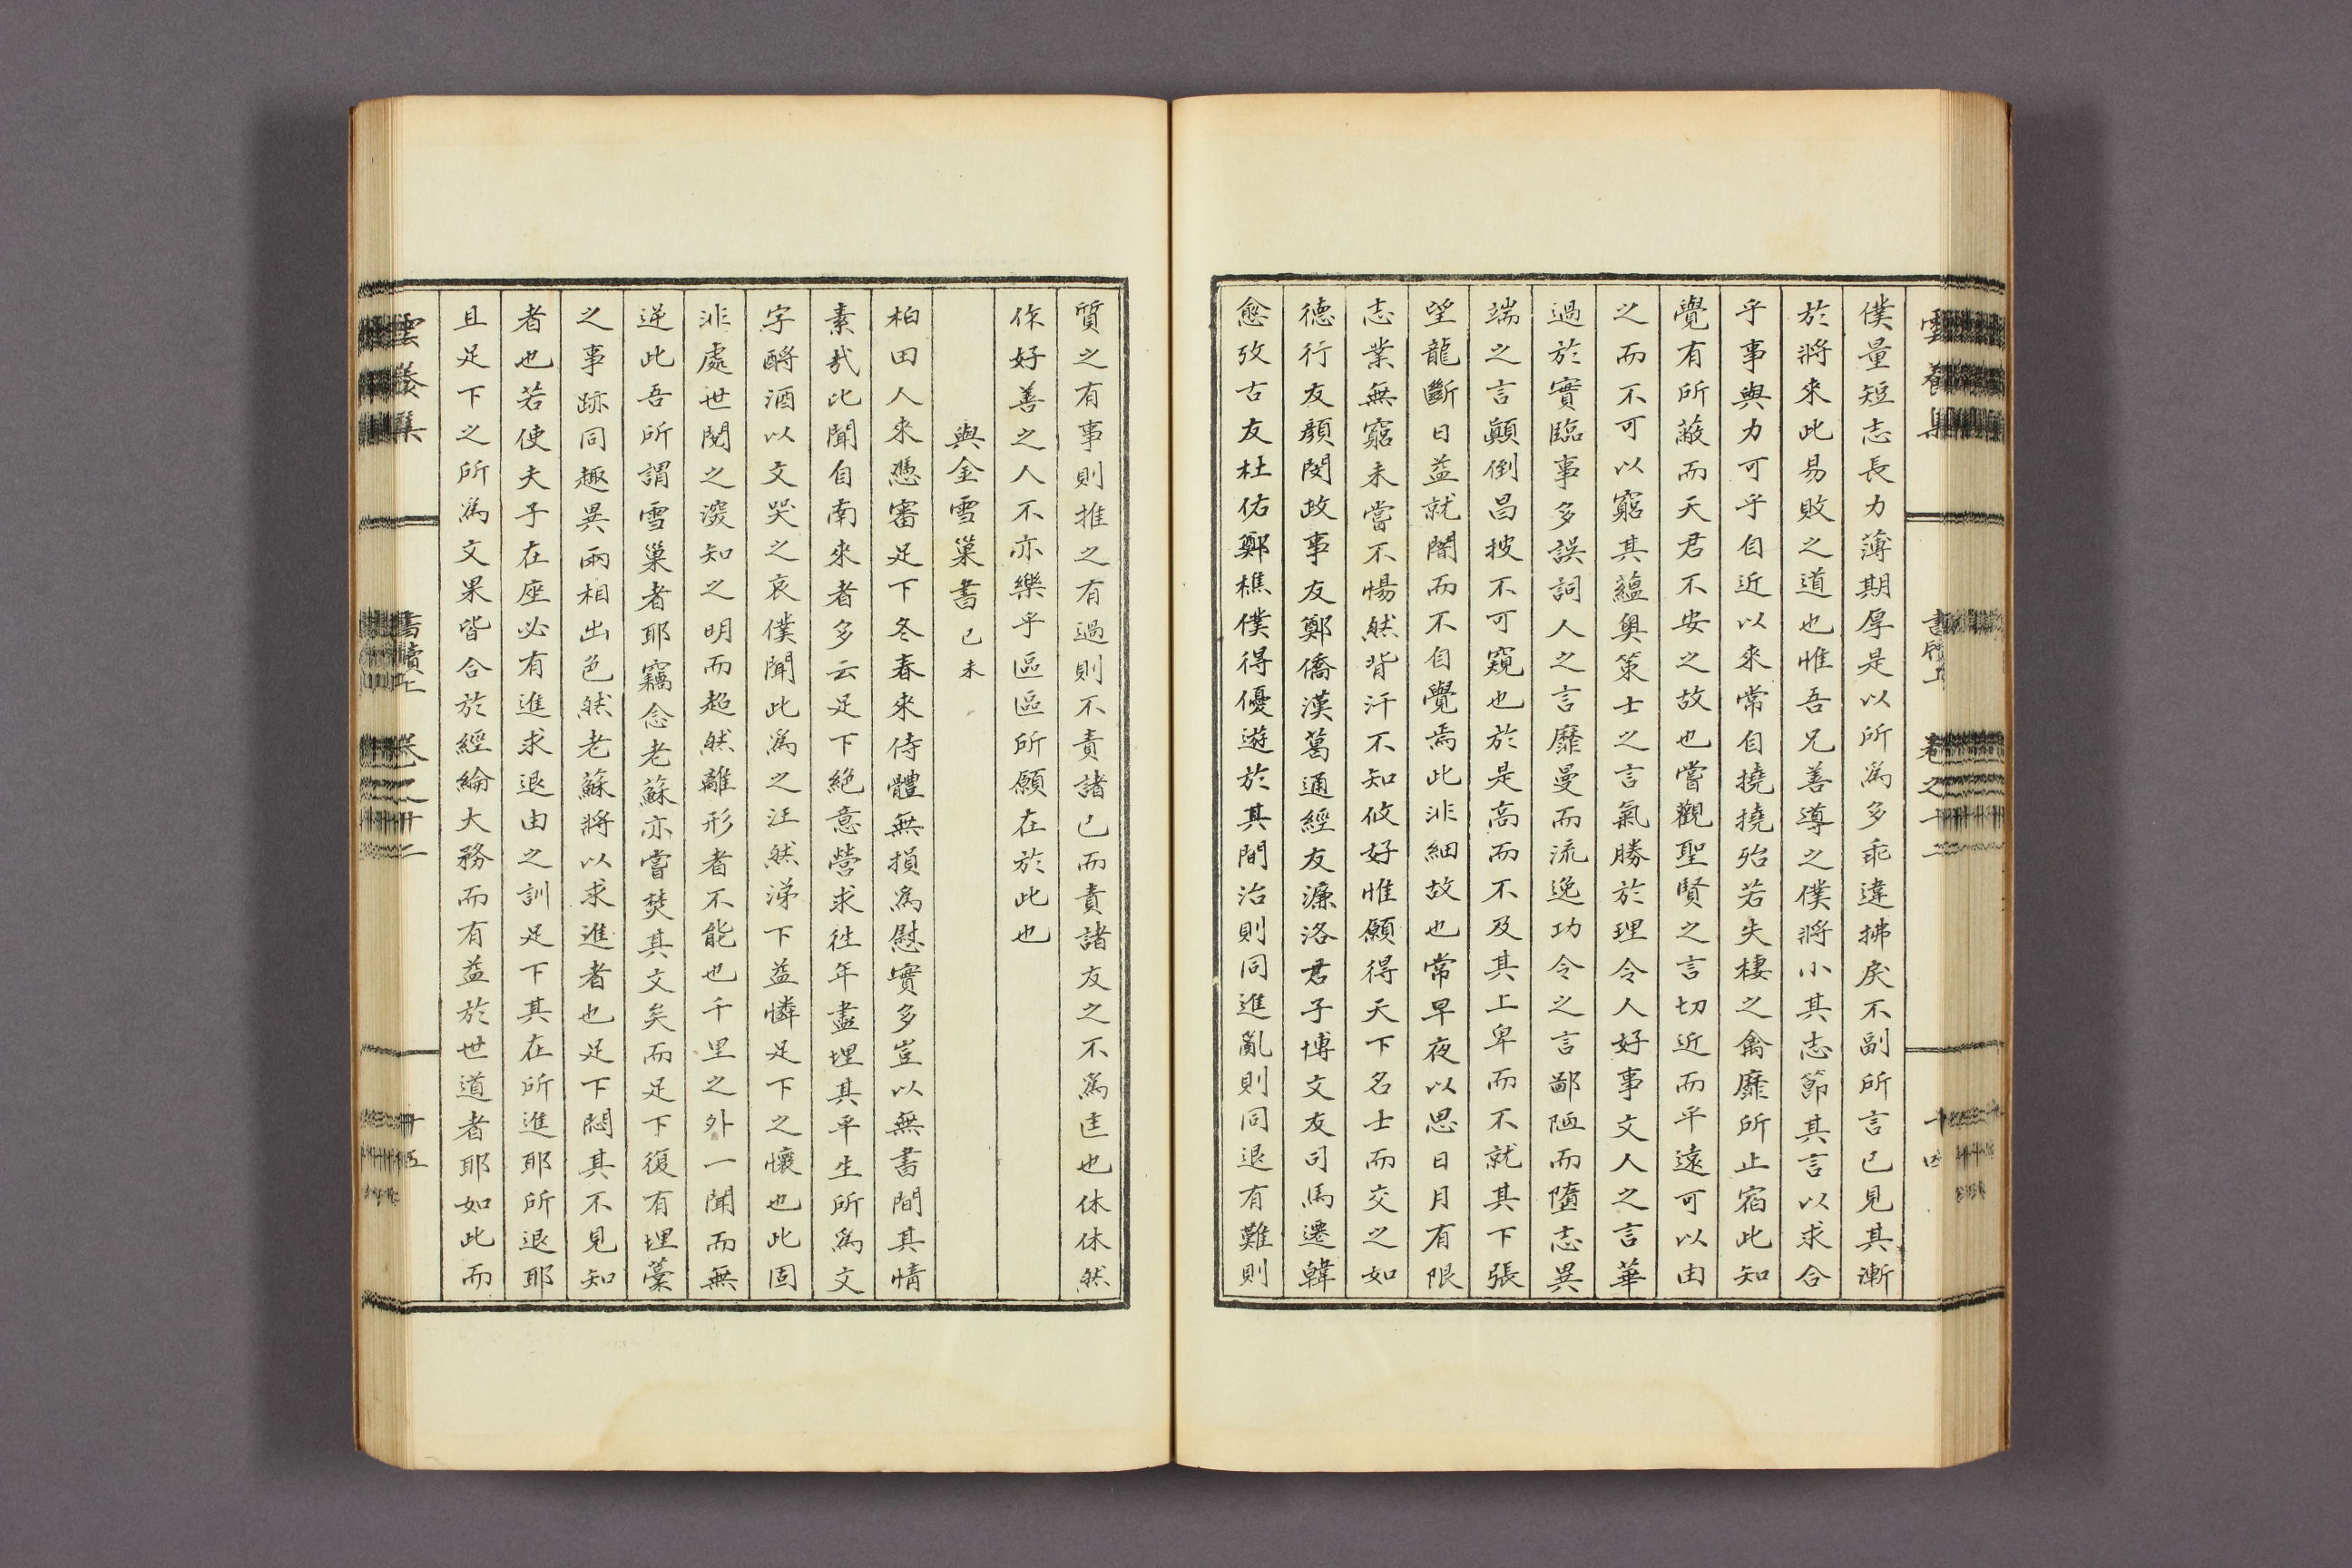 雲養集 書牘上 卷之十二 十四
僕量短志長力薄期厚是以所爲多乖違拂戾不副所言已見其漸
於將來此易敗之道也惟吾兄善導之僕將小其志節其言以求合
乎事與力可乎自近以來常自撓撓殆若失棲之禽靡所止宿此知
覺有所蔽而天君不安之故也嘗觀聖賢之言切近而平遠可以由
之而不可以窮其蘊奧策士之言氣勝於理令人好事文人之言華
過於實臨事多誤詞人之言靡曼而流逸功令之言鄙陋而墮志異
端之言顚倒昌披不可窺也於是高而不及其上卑而不就其下張
望龍斷日益就闇而不自覺焉此非細故也常早夜以思日月有限
志業無窮未嘗不惕然背汗不知攸好惟願得天下名士而交之如
德行友顔閔政事友鄭僑漢葛通經友濂洛君子博文友司馬遷韓
愈攷古友杜佑鄭樵僕得優遊於其間治則同進亂則同退有難則
質之有事則推之有過則不責諸己而責諸友之不爲匡也休休然
作好善之人不亦樂乎區區所願在於此也
與金雪巢書 己未
柏田人來憑審足下冬春來侍體無損爲慰實多豈以無書間其情
素哉比聞自南來者多云足下絶意營求徃年盡埋其平生所爲文
字酹酒以文哭之哀僕聞此爲之汪然涕下益憐足下之懷也此固
非處世閱之深知之明而超然離形者不能也千里之外一聞而無
逆此吾所謂雪巢者耶竊念老蘇亦嘗焚其文矣而足下復有埋藁
之事跡同趣異兩相出色然老蘇將以求進者也足下悶其不見知
者也若使夫子在座必有進求退由之訓足下其在所進耶所退耶
且足下之所爲文果皆合於經綸大務而有益於世道者耶如此而
雲養集 書牘上 卷之十二 十五